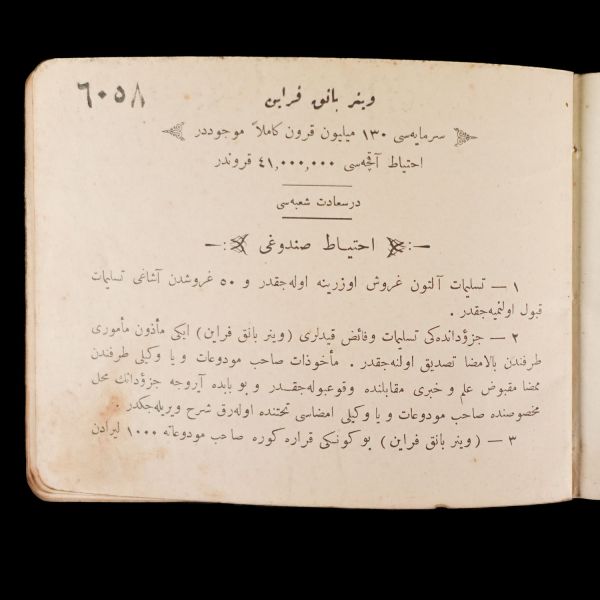 ٦٠٥٨
وینر بانق فراین
سرمایه‌سی ۱۳۰ میلیون قرون کاملاً موجوددر
احتیاط آقچه‌سی ٤۱,۰۰۰,۰۰۰ قروندر
درسعادت شعبه‌سی
احتیاط صندوغی
۱ — تسلیمات آلتون غروش اوزرینه اوله‌جقدر و ۵۰ غروشدن آشاغی تسلیمات
قبول اولنمیه‌جقدر .
۲ — جزؤداندەکی تسلیمات وفائض قیدلری (وینر بانق فراین) ایکی مأذون مأموری
طرفندن بالامضا تصدیق اولنه‌جقدر . مأخوذات صاحب مودوعات و یا وکیلی طرفندن
ممضا مقبوض علم و خبری مقابلنده وقوعبوله‌جقدر و بو بابده آیروجه جزؤدانك محل
مخصوصنده صاحب مودوعات و یا وکیلی امضاسی تحتنده اوله‌رق شرح ویریله‌جکدر .
۳ — (وینر بانق فراین) بو کونکی قراره کوره صاحب مودوعاته ۱۰۰۰ لیرادن